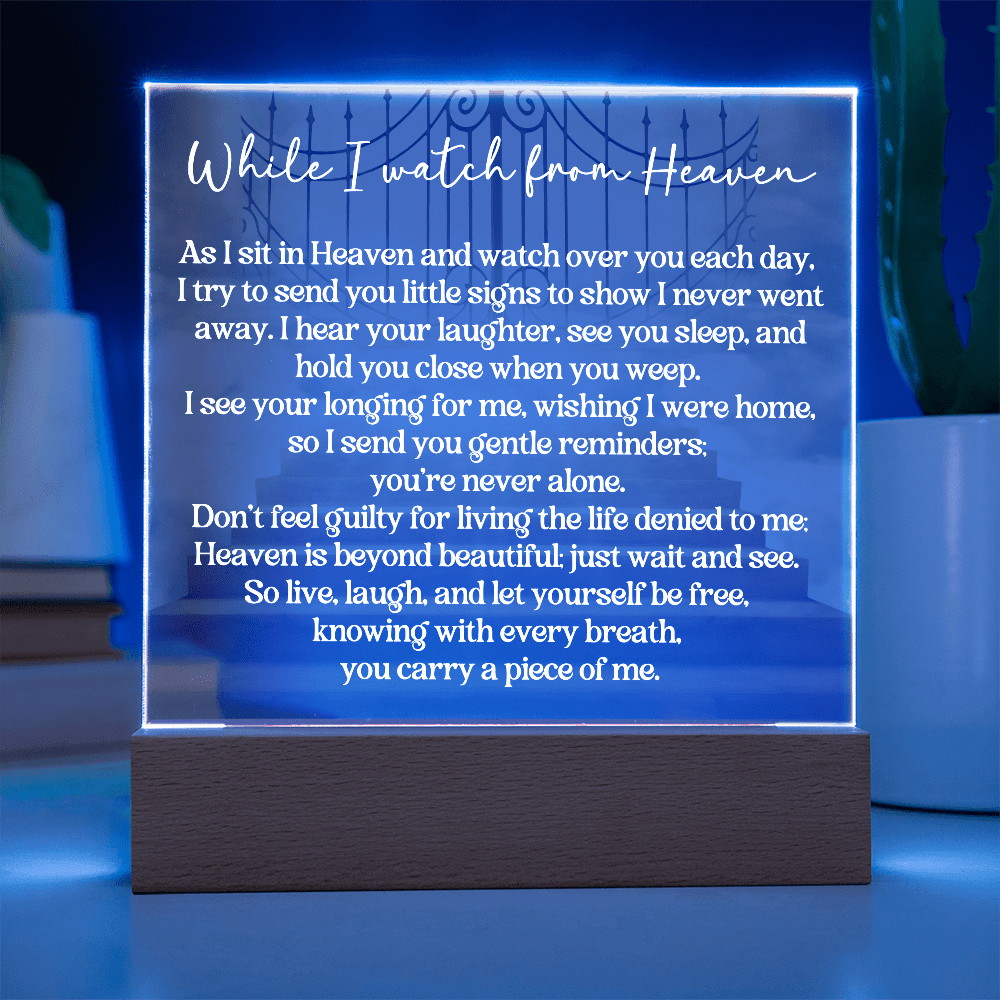 While I watch from Heaven
As I sit in Heaven and watch over you each day,
I try to send you little signs to show I never went
away. I hear your laughter, see you sleep, and
hold you close when you weep.
I see your longing for me, wishing I were home,
so I send you gentle reminders;
you're never alone.
Don't feel guilty for living the life denied to me;
Heaven is beyond beautiful; just wait and see.
So live, laugh, and let yourself be free,
knowing with every breath,
you carry a piece of me.